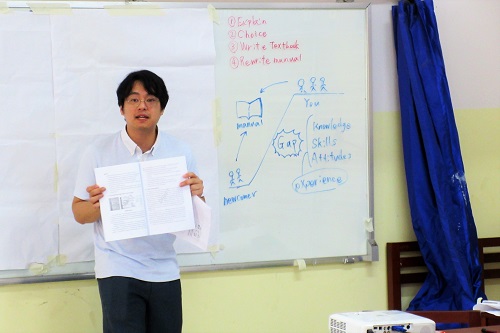 ① Explain
② Choice
③ Write Textbook
④ Rewrite manual
You
manual
Gap
Knowledge
Skills
Attitudes
experience
newcomer